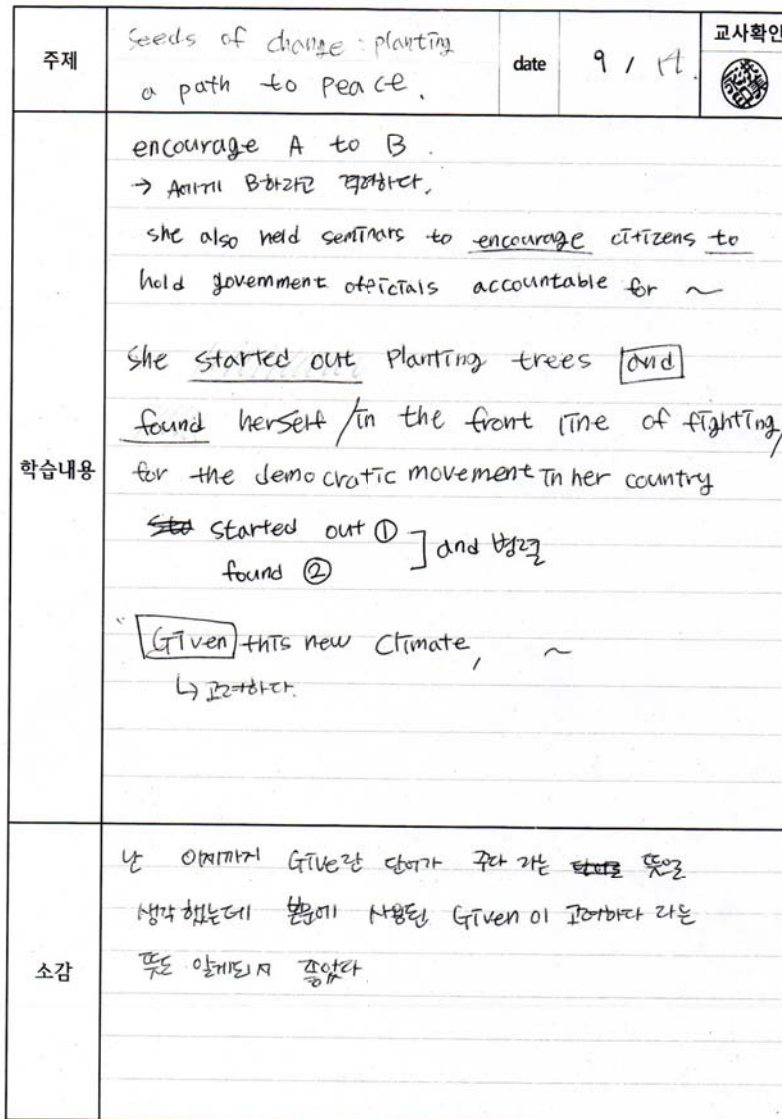 주제
Seeds of change : planting
a path to peace.
date
9 / 14.
교사확인
학습내용
encourage A to B.
→ A에게 B하라고 격려하다.
she also held seminars to encourage citizens to
hold government officials accountable for ~
she started out Planting trees and
found herself / in the front line of fighting /
for the democratic movement in her country
started out ①
found ②
] and 병렬
Given this new Climate, ~
↳ 고려하다.
소감
난 이제까지 Give란 단어가 주다 라는 뜻으로
생각 했는데 본문에 사용된 Given이 고려하다 라는
뜻도 알게되서 좋았다